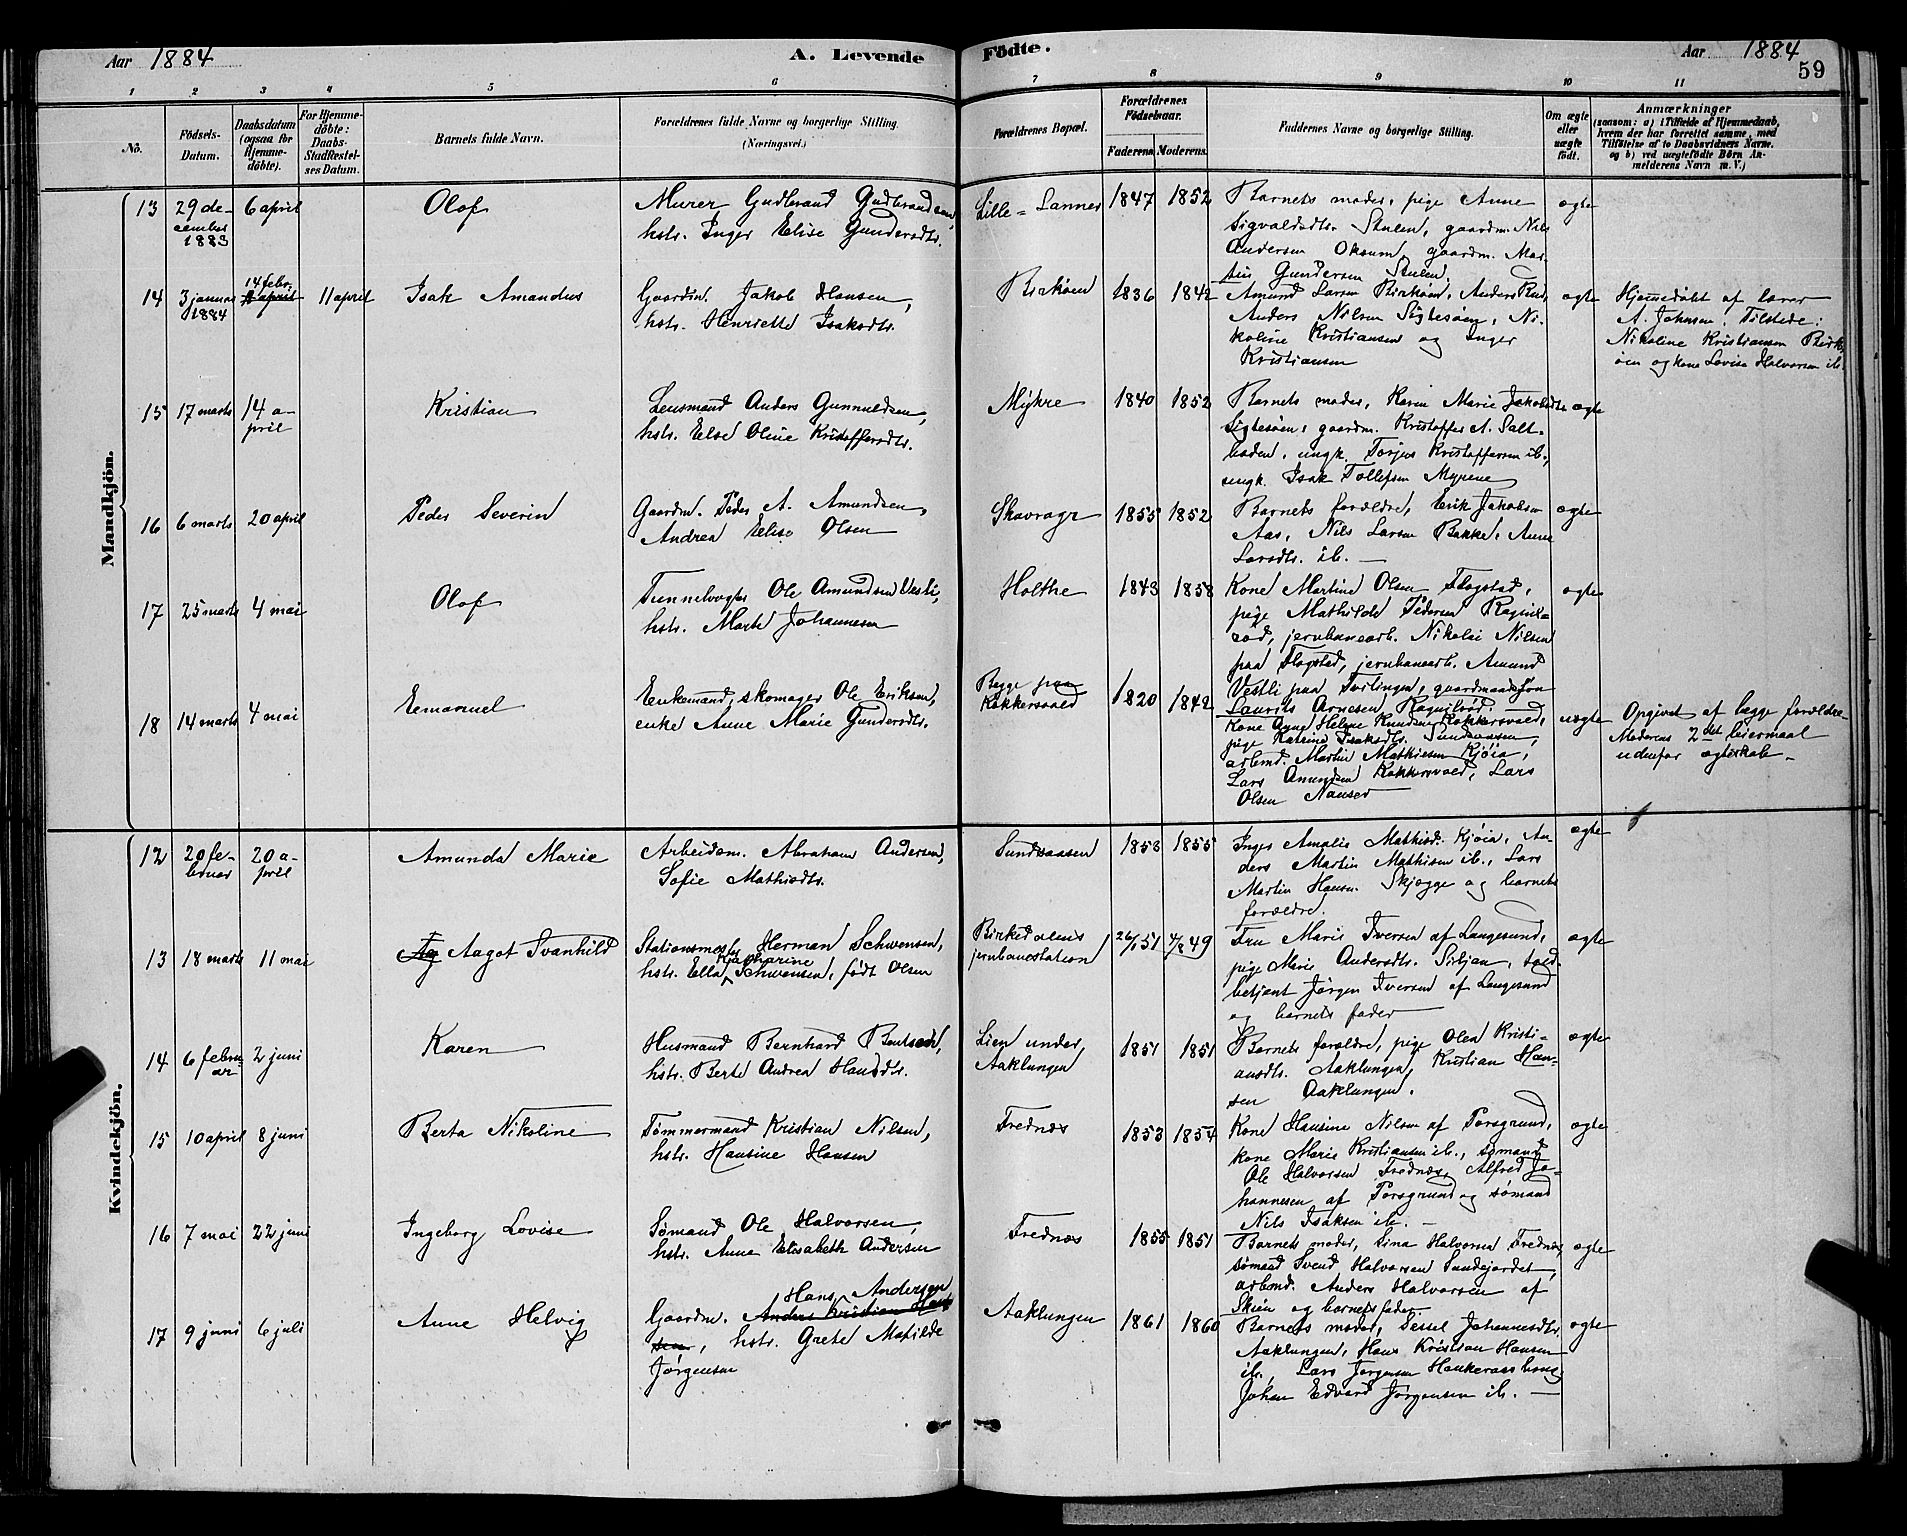 Aar 1884
A. Levende
Födte.
Aar 1884
59
1 2 3 4 5 6 7 8 9 10 11
No.
Födsels-
Datum.
Daabsdatum
(ogsaa for
Hjemme-
döbte).
For Hjemme-
döbte:
Daabs-
Stadfæstel-
ses Datum.
Barnets fulde Navn.
Forældrenes fulde Navne og borgerlige Stilling.
(Næringsvei.)
Forældrenes Bopæl.
Forældrenes
Födselsaar.
Faderens. Moderens.
Faddernes Navne og borgerlige Stilling.
Om ægte
eller
uægte
födt.
Anmærkninger
(saasom: a) i Tilfælde af Hjemmedaab,
hvem der har forrettet samme, med
Tilföielse af to Daabsvidners Navne,
og b) ved uægtefödte Börn An-
melderens Navn m. V.)
Mandkjön.
13
29 de-
cember
1883
6 april
Olof
Murer Gudbrand Gudbrandsen,
hstr. Inger Elise Gundersdtr.
Lille-Sannes
1847
1852
Barnets moder, pige Anne
Sigvaldsdtr. Stulen, gaardm. Nils
Andersen Oksum, gaardm. Mar-
tin Gundersen Stulen.
ægte
14
3 januar
1884
14 febr.
april
11 april
Isak Amandus
Gaardm. Jakob Hansen,
hstr. Henriette Isaksdtr.
Birköen
1836
1842
Amund Larsen Birköen, Anders
Anders Nilsen Sigtesöen, Ni-
koline Kristiansen og Inger
Kristiansen
ægte
Hjemmedöbt af lærer
A. Johnsen. Tilstede:
Nikoline Kristiansen Birk-
öen og kone Lovise Halvorsen ib.
15
17 marts
14 a-
pril
Kristian
Lensmand Anders Gunnuldsen,
hstr. Else Oline Kristoffersdtr.
Mykre
1840
1852
Barnets moder, Karen Marie Jakobsdtr.
Sigtesöen, gaardm. Kristoffer A. Salt-
boden, ungk. Torjus Kristoffersen ib.,
ungk. Isak Tollefsen Myrene
ægte
16
6 marts
20 april
Peder Severin
Gaardm. Peder A. Amundsen,
Andrea Elise Olsen
Skavrager
1855
1852
Barnets forældre, Erik Jakobsen
Aas, Nils Larsen Bakke, Anne
Larsdtr. ib.
ægte
17
25 marts
4 mai
Olof
Tunnelvogter Ole Amundsen Vestli,
hstr. Marte Johannesen
Holthe
1843
1858
Kone Martine Olsen Flogstad,
pige Mathilde Pedersen Ragnils-
röd, jernbanearb. Nikolai Nilsen
paa Flogstad, jernbanearb. Amund
Vestli paa Tvitingen, gaardmandssön
Laurits Arnesen Ragnilsröd.
ægte
18
14 marts
4 mai
Eemanuel
Enkemand, skomager Ole Eriksen,
enke Anne Marie Gundersdtr.
Begge paa
Kokkersvold
1820
1842
Kone Anne Helene Knudsen Kokkersvold,
pige Katrine Isaksdtr. Sundsaasen,
arbmd. Martin Mathiesen Kjöia,
Lars Amundsen Kokkersvold, Lars
Olsen Nanset
uægte
Opgivet af begge forældre.
Moderens 2det leiermaal
udenfor ægteskab.
Kvindekjön.
12
20 fe-
bruar
20 a-
pril
Amunda Marie
Arbeidsm. Abraham Andersen,
Sofie Mathisdtr.
Sundsaasen
1853
1855
Inger Amalie Mathisd. Kjöia, An-
ders Martin Mathisen ib., Lars
Martin Hansen Skjegge og barnets
forældre.
ægte
13
18 marts
11 mai
Aagot Svanhild
Stationsmester Herman Schwensen,
hstr. Ella Katharine Schwensen, födt Olsen
Birkedalens
jernbanestation
26/1 51
4/8 49
Fru Marie Iversen af Langesund,
pige Marie Andersdtr. Siljan, told-
betjent Jörgen Iversen af Langesund
og barnets fader
ægte
14
6 febru-
ar
2 juni
Karen
Husmand Bernhard Bentsen,
hstr. Berte Andrea Hansdtr.
Lien under
Aaklungen
1851
1851
Barnets forældre, pige Olea Kristi-
ansdtr. Aaklungen, Kristian Han-
sen Aaklungen.
ægte
15
10 april
8 juni
Berta Nikoline
Tömmermand Kristian Nilsen,
hstr. Hansine Hansen
Frednæs
1853
1854
Kone Hansine Nilsen af Porsgrund,
kone Marie Kristiansen ib., sömand
Ole Halvorsen Frednæs, Alfred Jo-
hannesen af Porsgrund og sömand
Nils Isaksen ib.
ægte
16
7 mai
22 juni
Ingeborg Lovise
Sömand Ole Halvorsen,
hstr. Anne Elisabeth Andersen
Frednæs
1855
1851
Barnets moder, Sina Halvorsen Frednæs,
sömand Svend Halvorsen Sundejordet,
arbmd. Anders Halvorsen af
Skien og barnets fader
ægte
17
9 juni
6 juli
Anne Helvig
Hans Andersen
Gaardm. Anders Kristian Han-
sen, hstr. Grete Matilde
Jörgensen
Aaklungen
1861
1860
Barnets moder, Sessel Johannesdtr.
Aaklungen, Hans Kristian Hansen
ib., Lars Jörgensen Haukeraas
Johan Edvard Jörgensen ib.
ægte